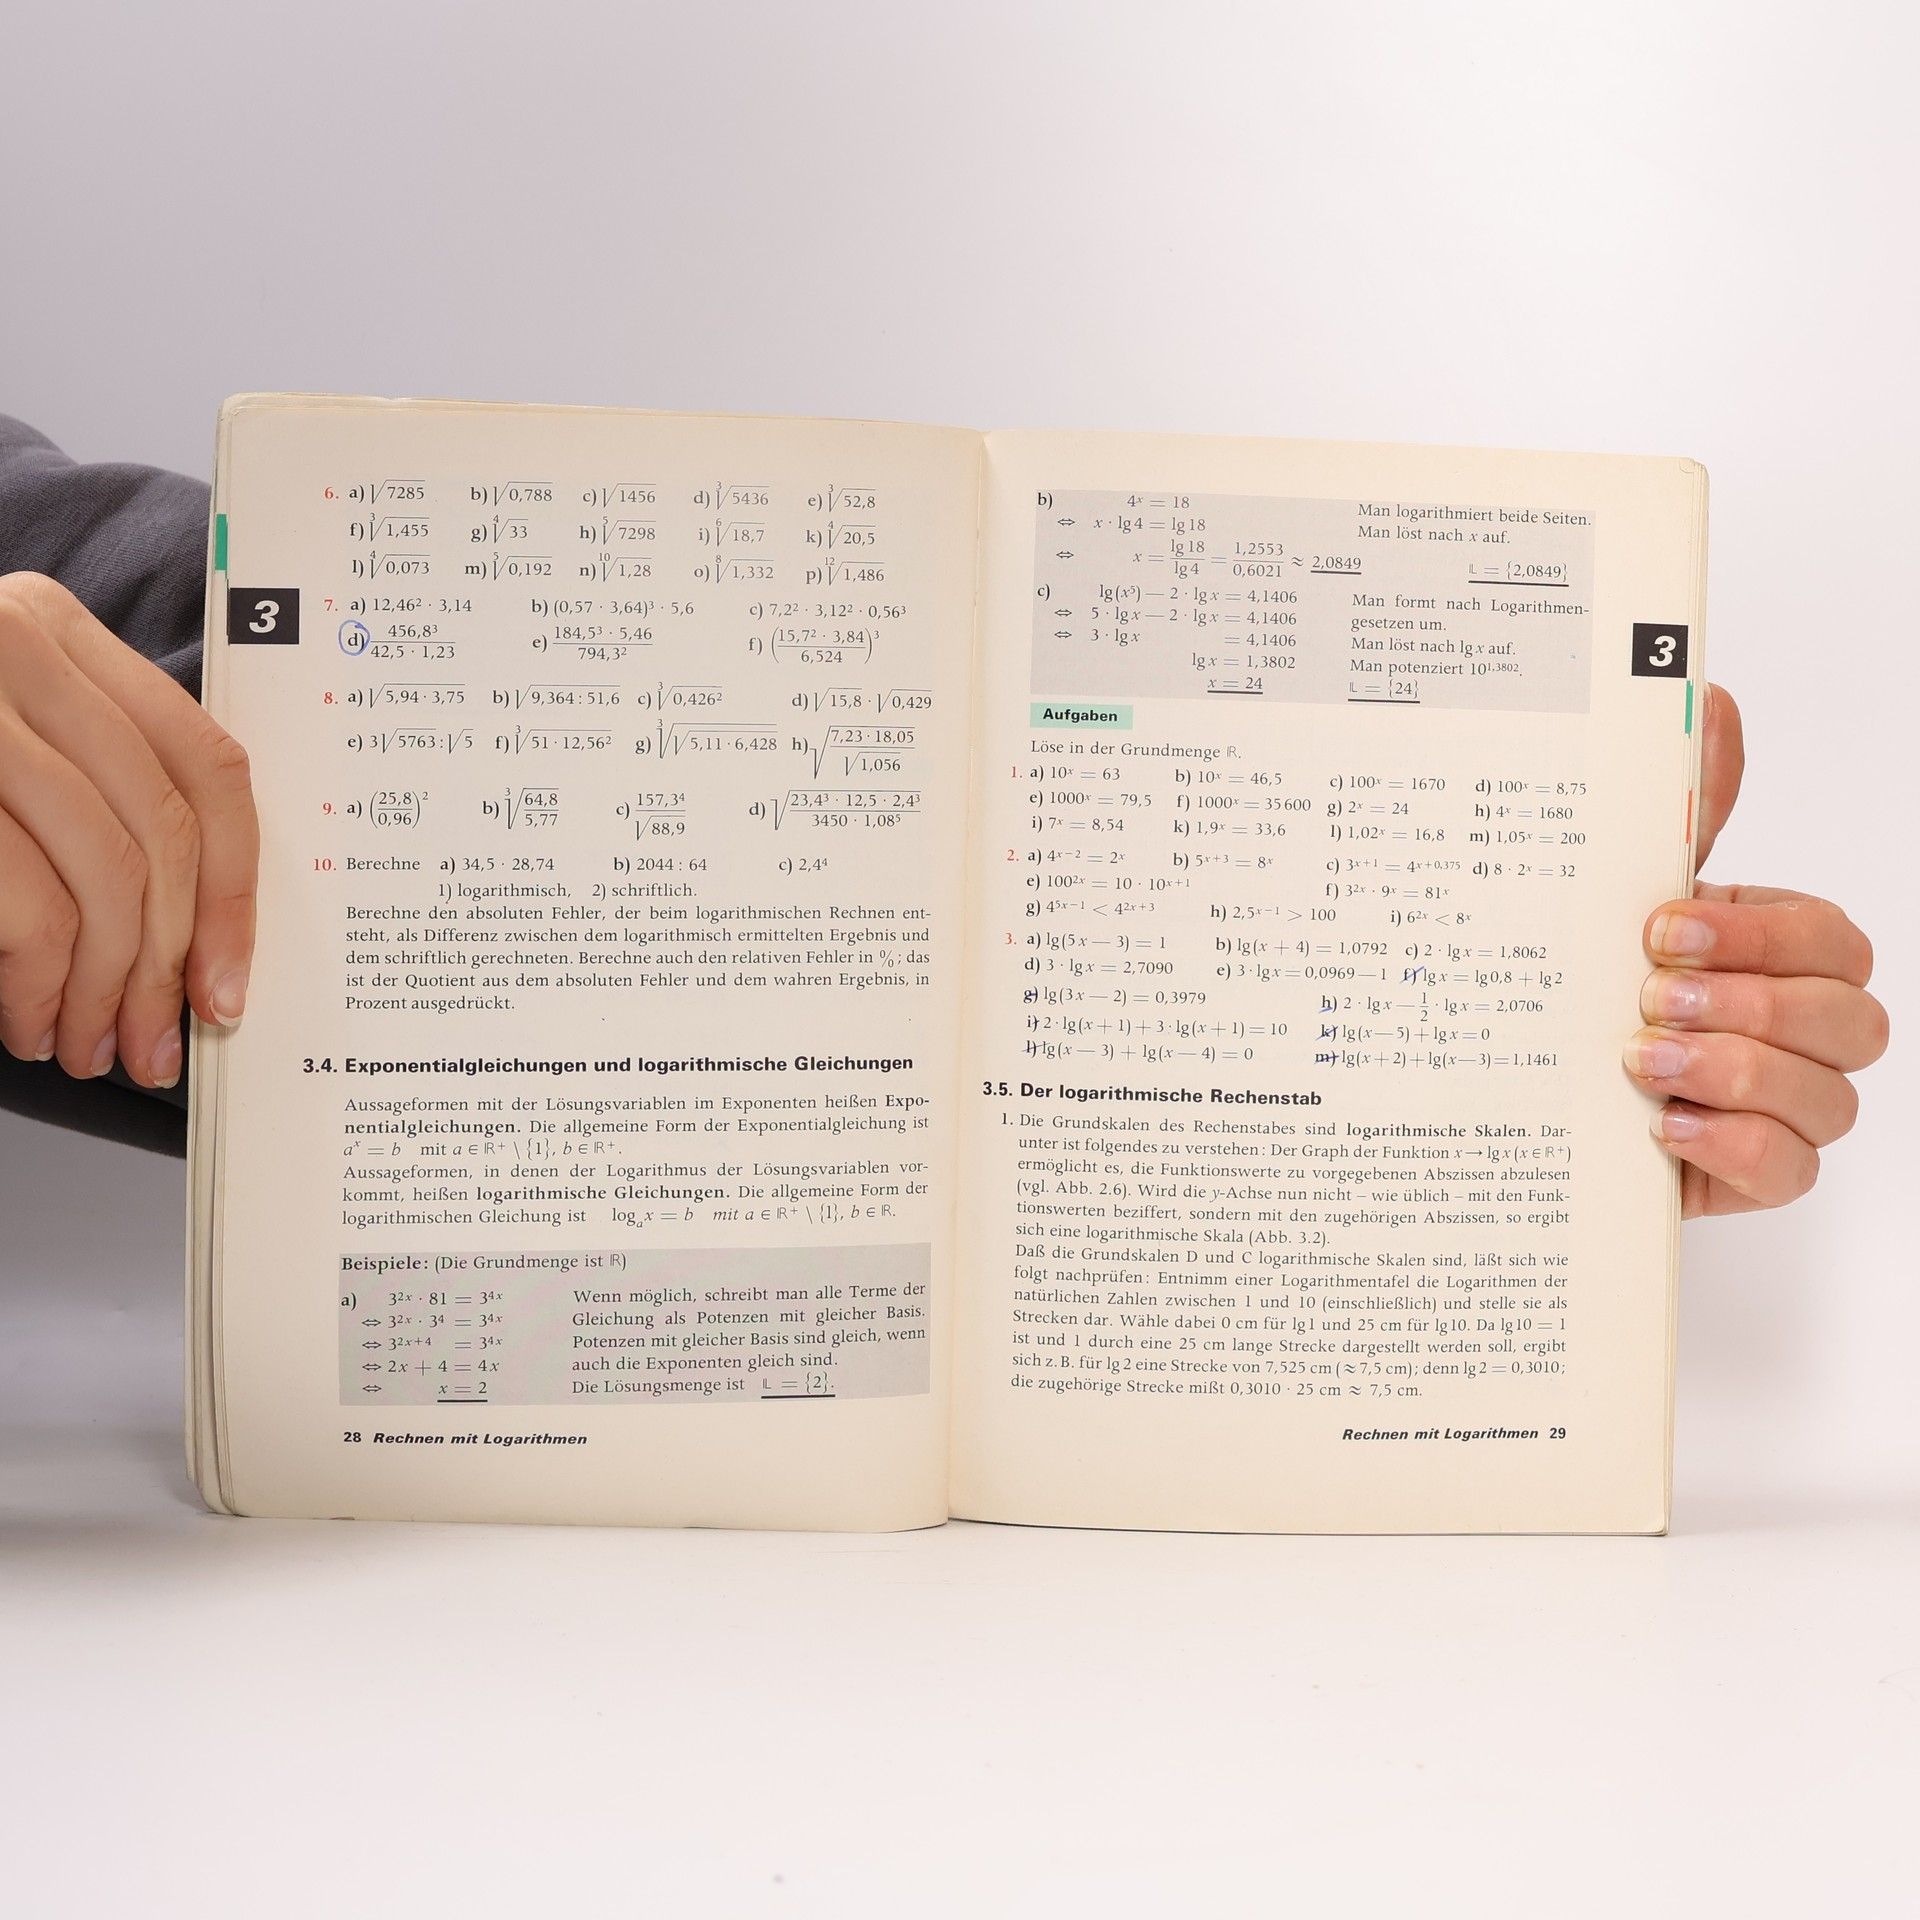 6. a) √7285 b) √0,788 c) √1456 d) ³√5436 e) ³√52,8
f) ³√1,455 g) ⁴√33 h) ⁵√7298 i) ⁶√18,7 k) ⁴√20,5
l) ⁴√0,073 m) ⁵√0,192 n) ¹⁰√1,28 o) ⁸√1,332 p) ¹²√1,486
3
7. a) 12,46² · 3,14 b) (0,57 · 3,64)³ · 5,6 c) 7,2² · 3,12² · 0,56³
d) 456,8³ / (42,5 · 1,23) e) (184,5³ · 5,46) / 794,3² f) ((15,7² · 3,84) / 6,524)³
8. a) √(5,94 · 3,75) b) √(9,364 : 51,6) c) ³√(0,426²) d) √15,8 · √0,429
e) 3√5763 : √5 f) ³√(51 · 12,56²) g) ³√(√(5,11 · 6,428)) h) √((7,23 · 18,05) / √1,056)
9. a) (25,8 / 0,96)² b) ³√(64,8 / 5,77) c) 157,3⁴ / √88,9 d) √((23,4³ · 12,5 · 2,4³) / (3450 · 1,08⁵))
10. Berechne a) 34,5 · 28,74 b) 2044 : 64 c) 2,4⁴
1) logarithmisch, 2) schriftlich.
Berechne den absoluten Fehler, der beim logarithmischen Rechnen ent-
steht, als Differenz zwischen dem logarithmisch ermittelten Ergebnis und
dem schriftlich gerechneten. Berechne auch den relativen Fehler in %; das
ist der Quotient aus dem absoluten Fehler und dem wahren Ergebnis, in
Prozent ausgedrückt.
3.4. Exponentialgleichungen und logarithmische Gleichungen
Aussageformen mit der Lösungsvariablen im Exponenten heißen Expo-
nentialgleichungen. Die allgemeine Form der Exponentialgleichung ist
aˣ = b mit a ∈ ℝ⁺ \ {1}, b ∈ ℝ⁺.
Aussageformen, in denen der Logarithmus der Lösungsvariablen vor-
kommt, heißen logarithmische Gleichungen. Die allgemeine Form der
logarithmischen Gleichung ist logₐx = b mit a ∈ ℝ⁺ \ {1}, b ∈ ℝ.
Beispiele: (Die Grundmenge ist ℝ)
a) 3²ˣ · 81 = 3⁴ˣ Wenn möglich, schreibt man alle Terme der
⇔ 3²ˣ · 3⁴ = 3⁴ˣ Gleichung als Potenzen mit gleicher Basis.
⇔ 3²ˣ⁺⁴ = 3⁴ˣ Potenzen mit gleicher Basis sind gleich, wenn
⇔ 2x + 4 = 4x auch die Exponenten gleich sind.
⇔ x = 2 Die Lösungsmenge ist 𝕃 = {2}.
28 Rechnen mit Logarithmen
b) 4ˣ = 18 Man logarithmiert beide Seiten.
⇔ x · lg 4 = lg 18 Man löst nach x auf.
⇔ x = lg 18 / lg 4 = 1,2553 / 0,6021 ≈ 2,0849 𝕃 = {2,0849}
c) lg(x⁵) — 2 · lg x = 4,1406 Man formt nach Logarithmen-
⇔ 5 · lg x — 2 · lg x = 4,1406 gesetzen um.
⇔ 3 · lg x = 4,1406 Man löst nach lg x auf.
lg x = 1,3802 Man potenziert 10^1,3802.
x = 24 𝕃 = {24}
3
Aufgaben
Löse in der Grundmenge ℝ.
1. a) 10ˣ = 63 b) 10ˣ = 46,5 c) 100ˣ = 1670 d) 100ˣ = 8,75
e) 1000ˣ = 79,5 f) 1000ˣ = 35600 g) 2ˣ = 24 h) 4ˣ = 1680
i) 7ˣ = 8,54 k) 1,9ˣ = 33,6 l) 1,02ˣ = 16,8 m) 1,05ˣ = 200
2. a) 4ˣ⁻² = 2ˣ b) 5ˣ⁺³ = 8ˣ c) 3ˣ⁺¹ = 4^(x+0,375) d) 8 · 2ˣ = 32
e) 100²ˣ = 10 · 10ˣ⁺¹ f) 3²ˣ · 9ˣ = 81ˣ
g) 4⁵ˣ⁻¹ < 4²ˣ⁺³ h) 2,5ˣ⁻¹ > 100 i) 6²ˣ < 8ˣ
3. a) lg(5x — 3) = 1 b) lg(x + 4) = 1,0792 c) 2 · lg x = 1,8062
d) 3 · lg x = 2,7090 e) 3 · lg x = 0,0969 — 1 f) lg x = lg 0,8 + lg 2
g) lg(3x — 2) = 0,3979 h) 2 · lg x — 1/2 · lg x = 2,0706
i) 2 · lg(x + 1) + 3 · lg(x + 1) = 10 k) lg(x — 5) + lg x = 0
l) lg(x — 3) + lg(x — 4) = 0 m) lg(x + 2) + lg(x — 3) = 1,1461
3.5. Der logarithmische Rechenstab
1. Die Grundskalen des Rechenstabes sind logarithmische Skalen. Dar-
unter ist folgendes zu verstehen: Der Graph der Funktion x → lg x (x ∈ ℝ⁺)
ermöglicht es, die Funktionswerte zu vorgegebenen Abszissen abzulesen
(vgl. Abb. 2.6). Wird die y-Achse nun nicht – wie üblich – mit den Funk-
tionswerten beziffert, sondern mit den zugehörigen Abszissen, so ergibt
sich eine logarithmische Skala (Abb. 3.2).
Daß die Grundskalen D und C logarithmische Skalen sind, läßt sich wie
folgt nachprüfen: Entnimm einer Logarithmentafel die Logarithmen der
natürlichen Zahlen zwischen 1 und 10 (einschließlich) und stelle sie als
Strecken dar. Wähle dabei 0 cm für lg 1 und 25 cm für lg 10. Da lg 10 = 1
ist und 1 durch eine 25 cm lange Strecke dargestellt werden soll, ergibt
sich z. B. für lg 2 eine Strecke von 7,525 cm (≈ 7,5 cm); denn lg 2 = 0,3010;
die zugehörige Strecke mißt 0,3010 · 25 cm ≈ 7,5 cm.
Rechnen mit Logarithmen 29